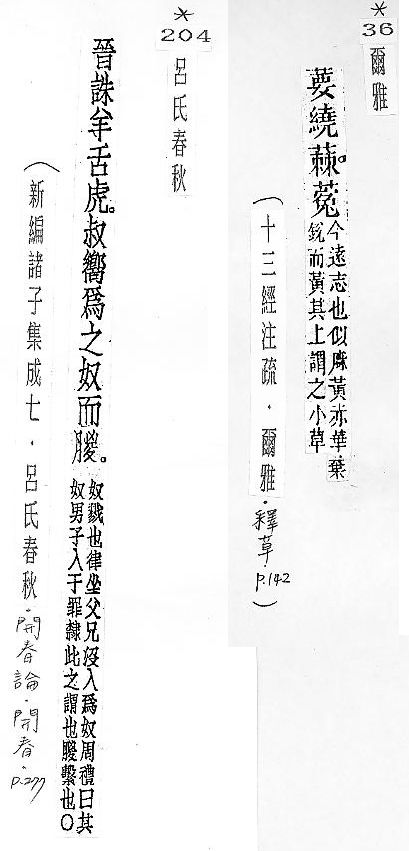 ＊
36
爾雅
葽繞蕀。蒬
今遠志也似麻黃赤華葉
銳而黃其上謂之小草
（十三經注疏．爾雅．釋草．p.142）
＊
204
呂氏春秋
晉誅羊舌虎。叔嚮爲之奴而朡。
奴戮也律坐父兄沒入爲奴周禮曰其
奴男子入于罪隸此之謂也朡繫也○
（新編諸子集成七．呂氏春秋．開春論．開春．p.277